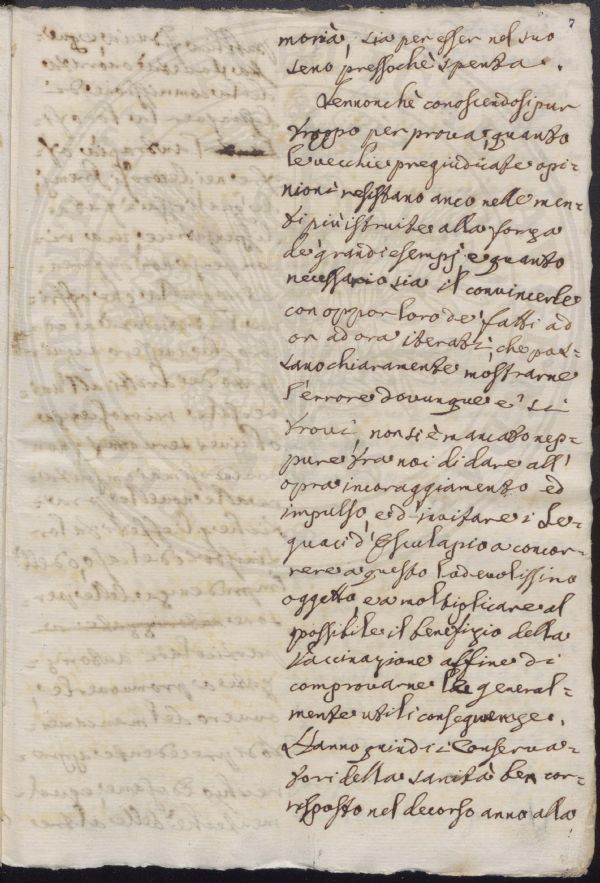 7
moria, sia per esser nel suo
seno pressochè spenta.
Sennonchè conoscendosi pur
troppo per prova, quanto
le vecchie pregiudicate opi-
nioni resistano anco nelle men-
ti più istruite alla forza
de' grandi esempj e quanto
necessario sia il convincerle
con oppor loro de' fatti ad
or ad ora iterati, che pos-
sano chiaramente mostrarne
l'errore dovunque e' si
trovi, non si è mancato nep-
pure tra noi di dare all'
opra incoraggiamento ed
impulso, e d'invitare i Se-
guaci d'Esculapio a concor-
rere a questo lodevolissimo
oggetto, e a moltiplicare al
possibile il benefizio della
Vaccinazione affine di
comprovarne le general-
mente utili conseguenze.
Hanno quindi i Conserva-
tori della sanità ben cor-
risposto nel decorso anno alla